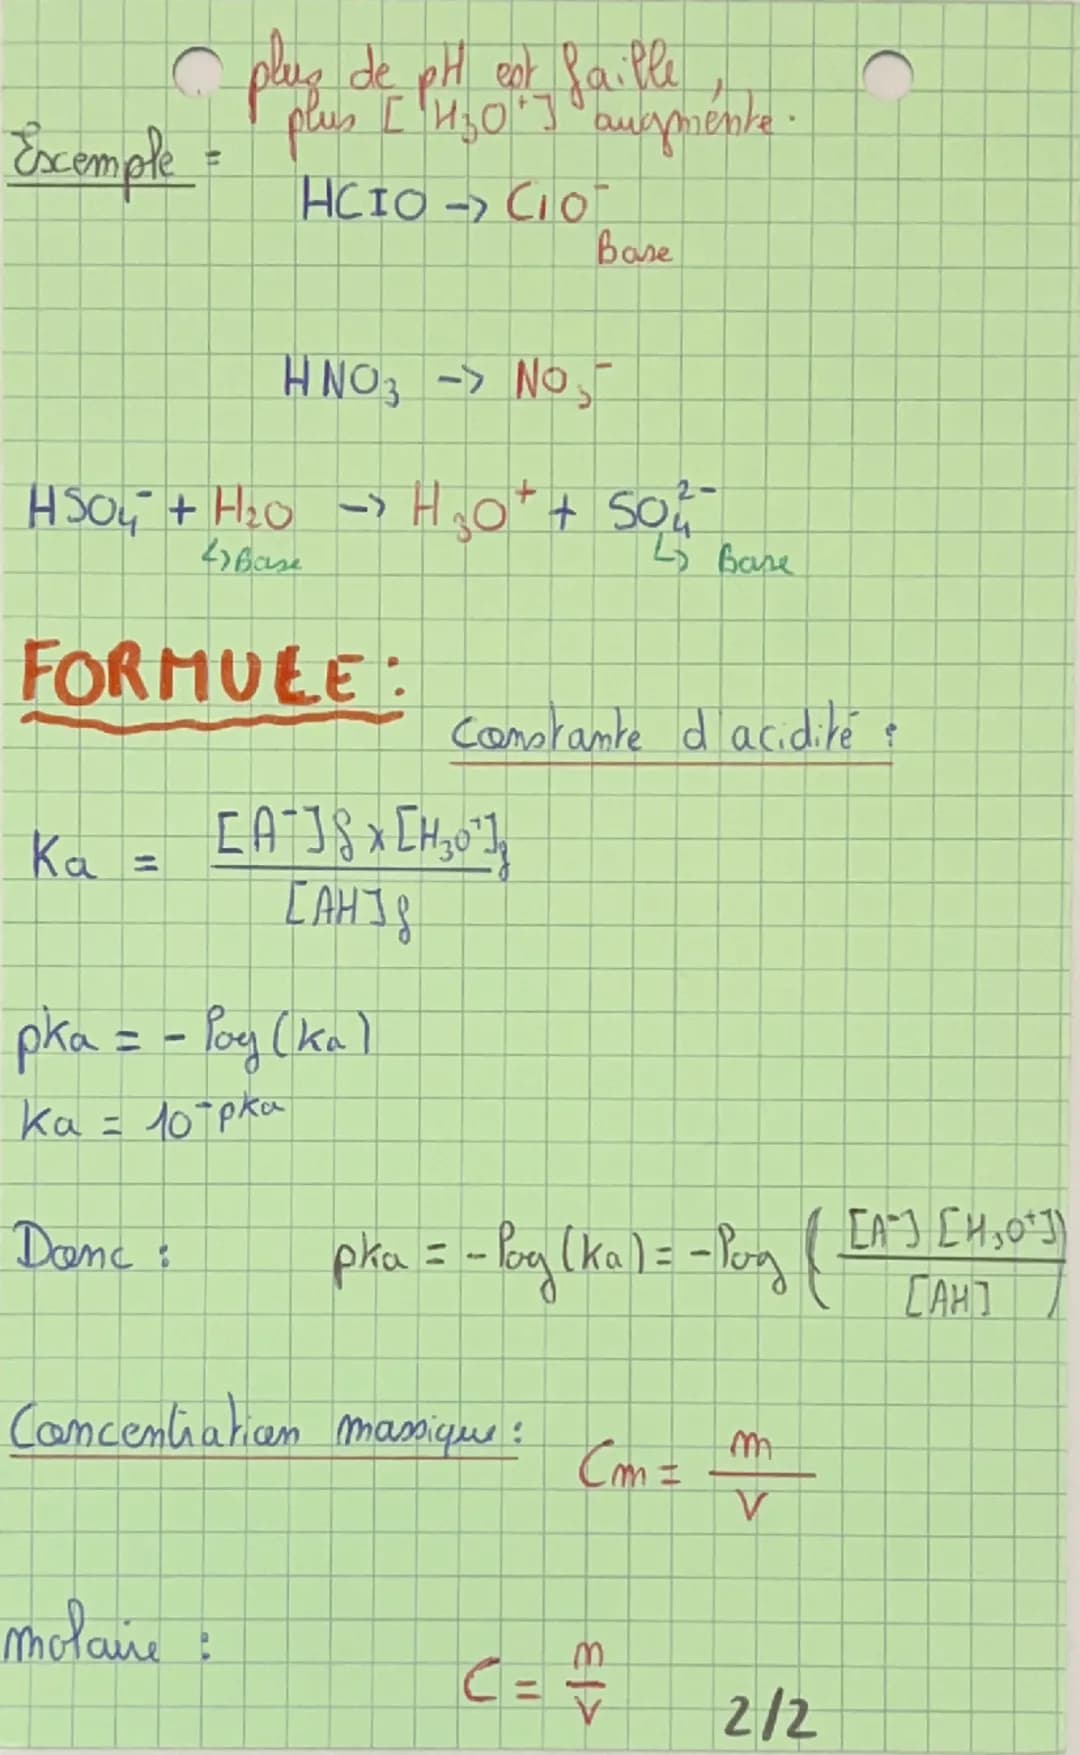 plus de pH est faille,
plus [H₃O⁺] augmente.
Exemple =
HClO -> ClO⁻
Base
HNO₃ -> NO₃⁻
HSO₄⁻ + H₂O -> H₃O⁺ + SO₄²⁻
↳ Base ↳ Base
FORMULE :
Constante d'acidité :
Ka = [A⁻]f x [H₃O⁺]f / [AH]f
pka = - log (ka)
Ka = 10⁻ᵖᵏᵃ
Donc : pka = - log (ka) = - log ([A⁻] [H₃O⁺] / [AH])
Concentration massique : Cm = m / V
molaire : C = m / V
2/2